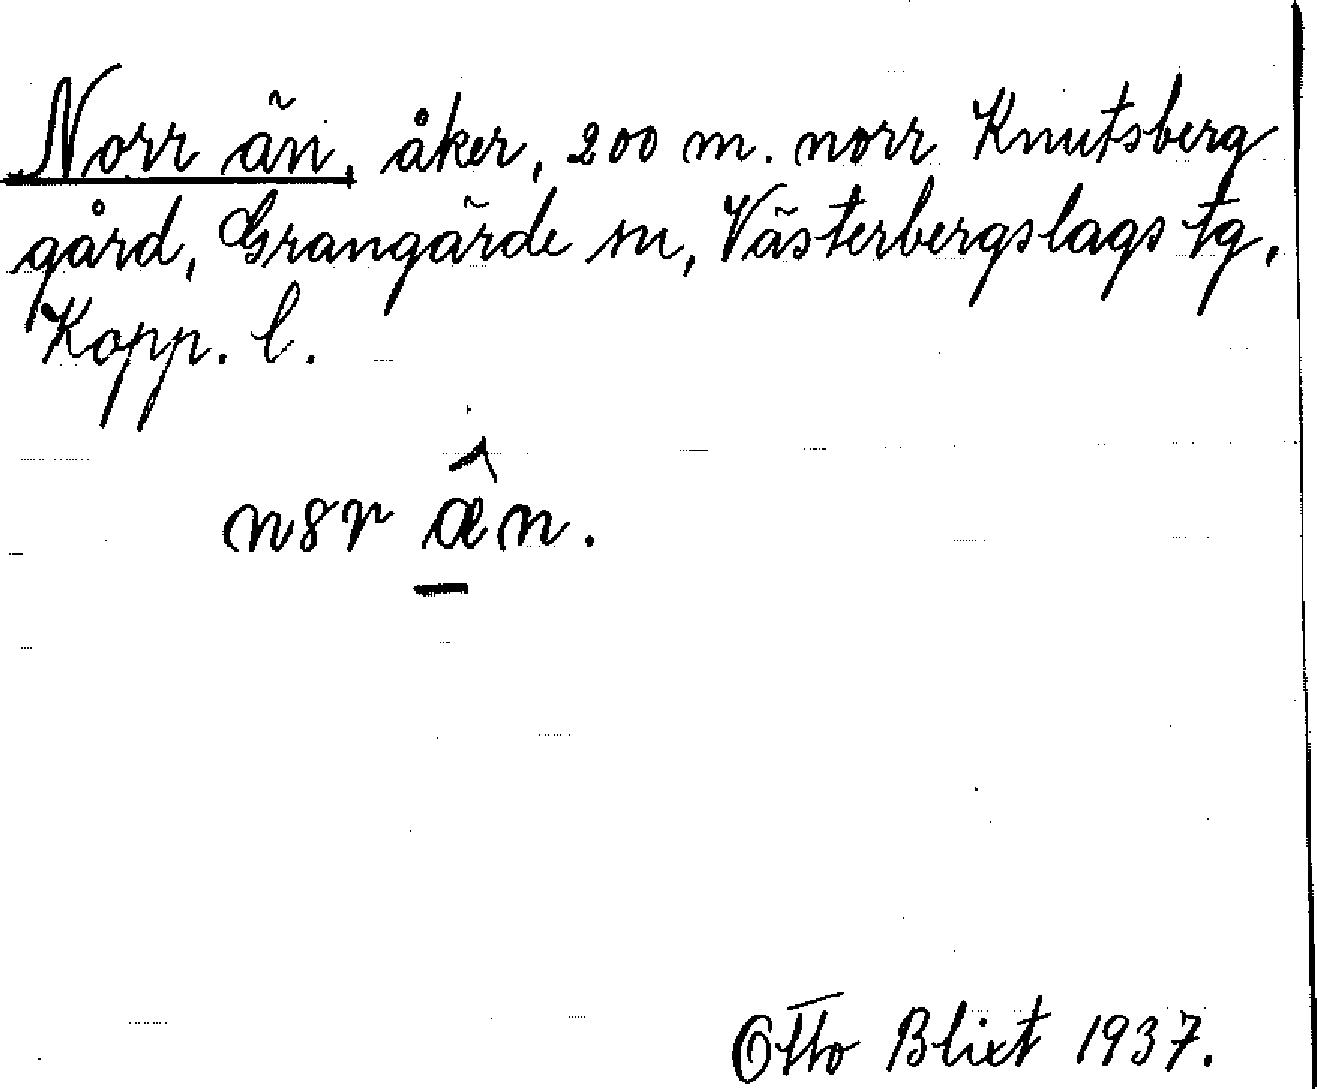 Norr än, åker, 200 m. norr Knutsberg
gård, Grangärde sn, Västerbergslags tg,
Kopp. l.
nor æ̂n.
Otto Blixt 1937.